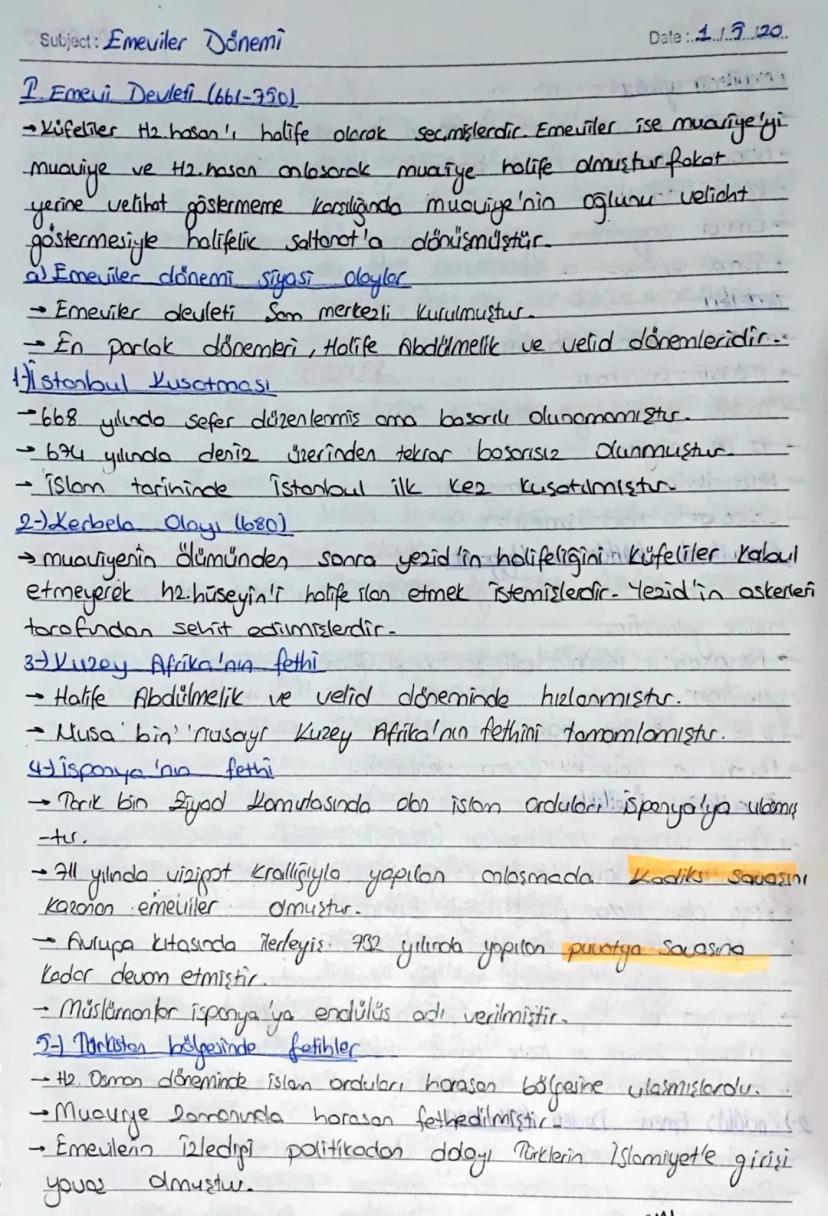 Subject: Emeviler Dönemi
Date: 1.1.9.20..
I. Emevi Devleti (661-750)
→ Kûfeliler Hz. hasan'ı halife olarak seçmişlerdir. Emeviler ise muaviye'yi
muaviye ve Hz. hasan anlaşarak muaviye halife olmuştur fakat
yerine velihat göstermeme karşılığında muaviye'nin oğlunu veliaht
göstermesiyle halifelik saltanat'a dönüşmüştür.
a) Emeviler dönemi siyasi olaylar
→ Emeviler devleti Şam merkezli kurulmuştur.
→ En parlak dönemleri, Halife Abdülmelik ve velid dönemleridir.
1-) İstanbul Kuşatması
→ 668 yılında sefer düzenlemiş ama başarılı olunamamıştır.
→ 674 yılında deniz üzerinden tekrar başarısız olunmuştur.
→ İslam tarihinde İstanbul ilk kez kuşatılmıştır.
2-) Kerbela Olayı (680)
→ muaviyenin ölümünden sonra yezid'in halifeliğini Kûfeliler kabul
etmeyerek hz. hüseyin'i halife ilan etmek istemişlerdir. Yezid'in askerleri
tarafından şehit edilmişlerdir.
3-) Kuzey Afrika'nın fethi
→ Halife Abdülmelik ve velid döneminde hızlanmıştır.
→ Musa bin nusayr Kuzey Afrika'nın fethini tamamlamıştır.
4-) ispanya'nın fethi
→ Tarık bin Ziyad komutasında olan islam orduları ispanya'ya ulaşmış
-tır.
→ 711 yılında vizigot krallığıyla yapılan anlaşmada Kadiks savaşını
kazanan emeviler olmuştur.
→ Avrupa kıtasında ilerleyiş 732 yılında yapılan puvatya savaşına
kadar devam etmiştir.
→ Müslümanlar ispanya'ya endülüs adı verilmiştir.
5-) Türkistan bölgesinde fetihler
→ Hz. Osman döneminde islam orduları horasan bölgesine ulaşmışlardı.
→ Muaviye zamanında horasan fethedilmiştir.
→ Emevilerin izlediği politikadan dolayı Türklerin İslamiyet'e girişi
yavaş olmuştur.